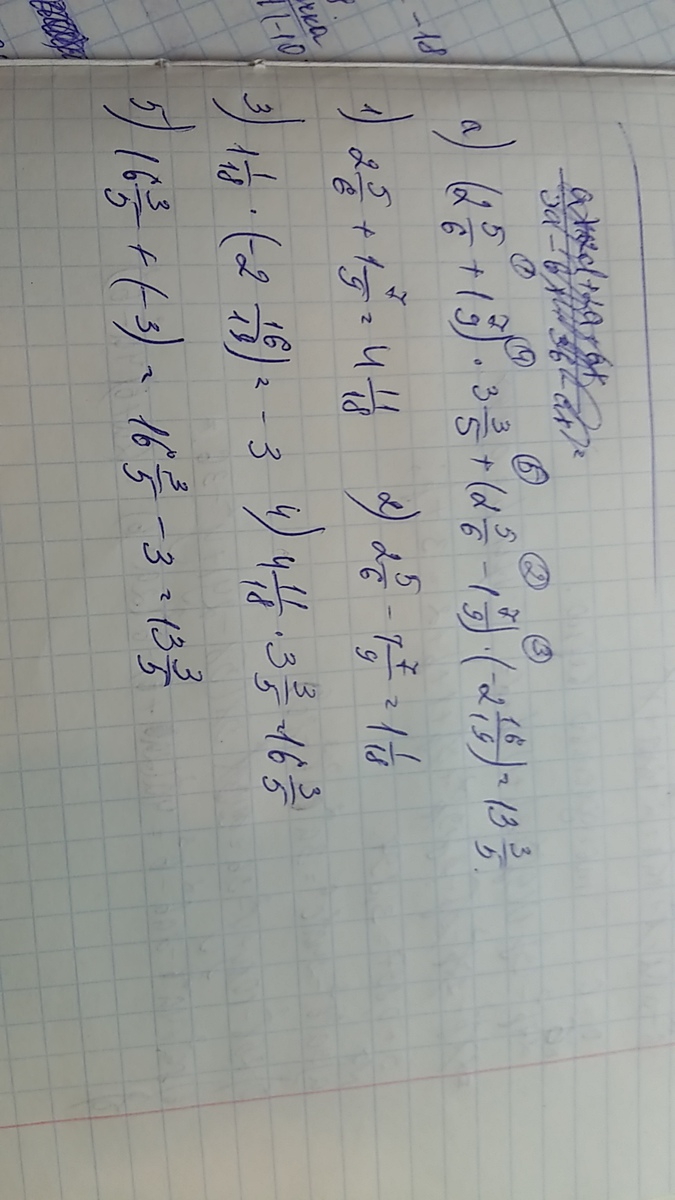 -18
(-10
а) (2 5/6 + 1 7/9) · 3 3/5 + (2 5/6 - 1 7/9) · (-2 16/19) = 13 3/5.
① ④ ⑤ ② ③
1) 2 5/6 + 1 7/9 = 4 11/18 2) 2 5/6 - 1 7/9 = 1 1/18
3) 1 1/18 · (-2 16/19) = -3 4) 4 11/18 · 3 3/5 = 16 3/5
5) 16 3/5 + (-3) = 16 3/5 - 3 = 13 3/5